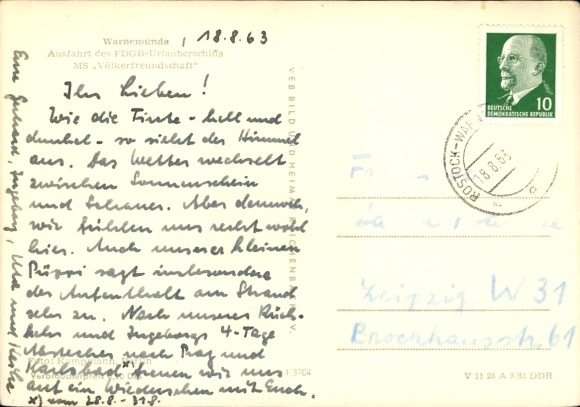 Warnemünde
Ausfahrt des FDGB-Urlauberschiffs
MS „Völkerfreundschaft"
18.8.63
Ihr Lieben!
Wie die Tinte - hell und
dunkel - so sieht der Himmel
aus. Das Wetter wechselt
zwischen Sonnenschein
und Schauer. Aber dennoch,
wir fühlen uns recht wohl
hier. Auch unserer kleinen
Püppi sagt insbesondere
der Aufenthalt am Strand
sehr zu. Nach unserer Rück-
kehr und Ingeborgs 4-Tage
nach Prag und
Karlsbad x) freuen wir uns
auf ein Wiedersehen mit Euch.
x) vom 28.8. - 31.8.
Eure Gerhard, Ingeborg, und
VEB BILD UND HEIMAT REICHENBACH I. V.
Foto:
V 11 28 A 3/62 DDR
DEUTSCHE
DEMOKRATISCHE REPUBLIK
10
ROSTOCK-
18.8.63
Leipzig W 31
Brockhausstr. 61